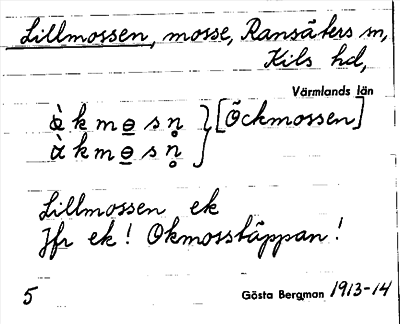 Lillmossen, mosse, Ransäters sn,
Kils hd,
Värmlands län
œ̀ k m ɵ s n̥ } [Öckmossen]
à k m ɵ s n̥
Lillmossen ek
Jfr ek! Okmosstäppan!
5 Gösta Bergman 1913-14